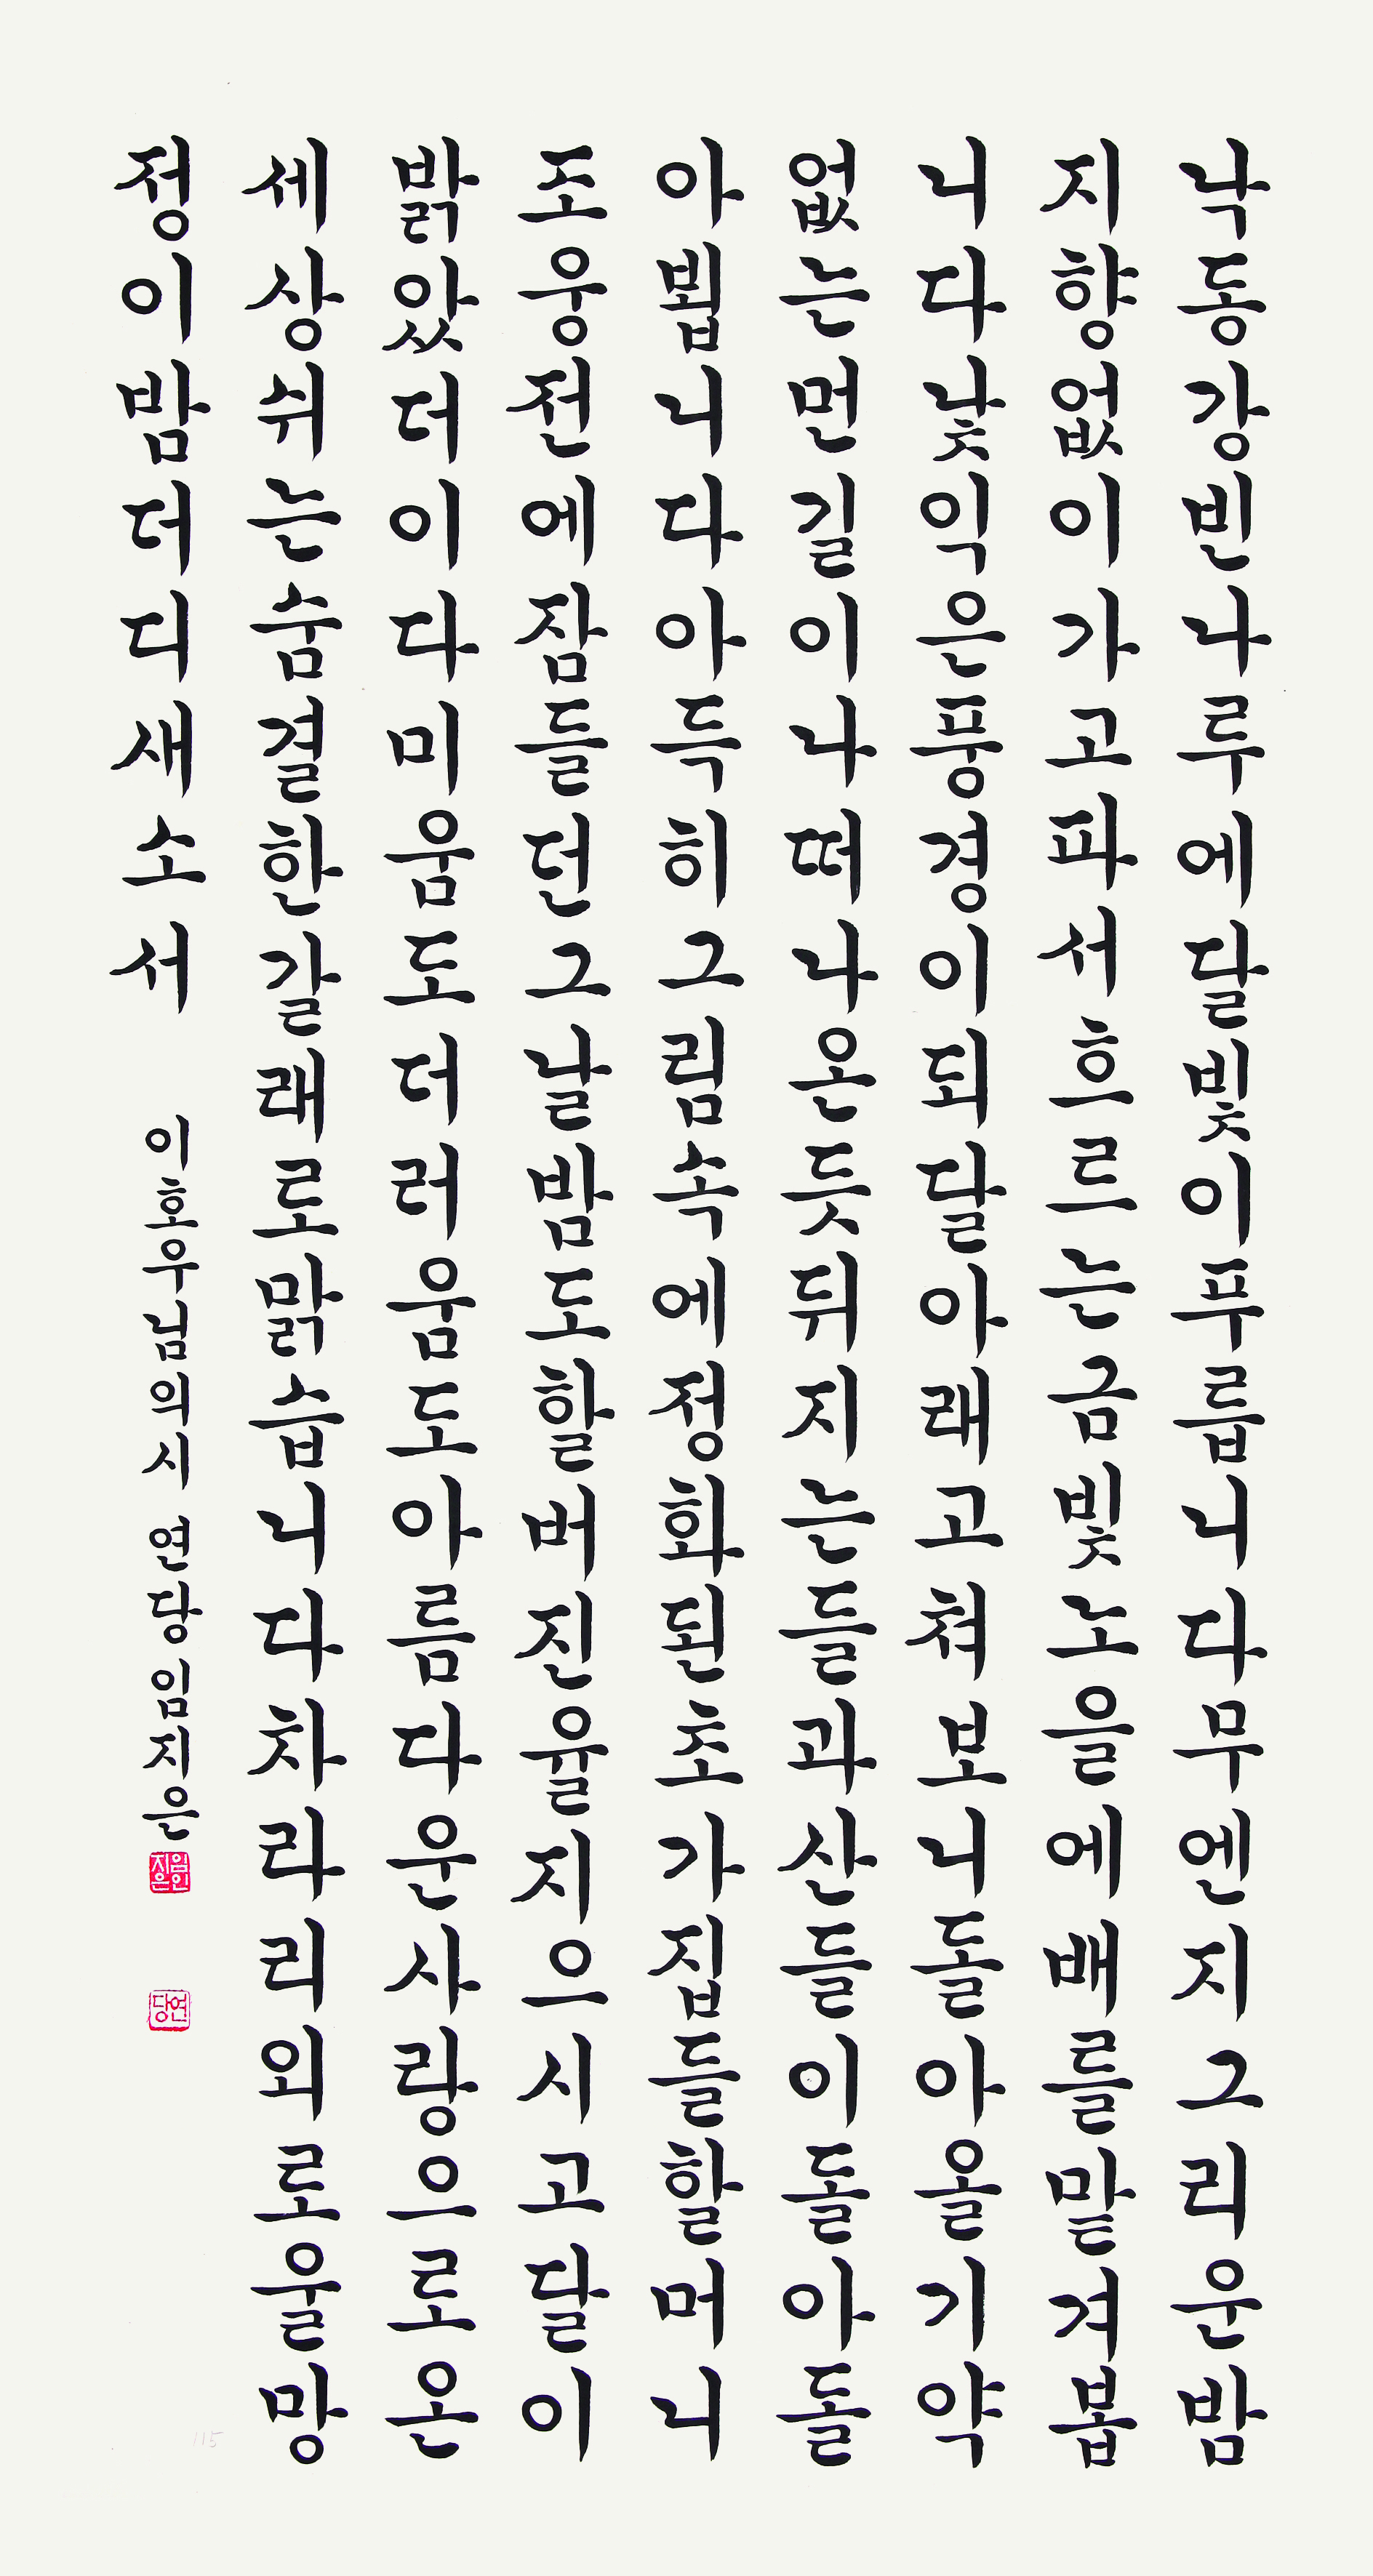 낙동강빈나루에달빛이푸릅니다무엔지그리운밤
지향없이가고파서흐르는금빛노을에배를맡겨봅
니다낯익은풍경이되달아래고쳐보니돌아올기약
없는먼길이나떠나온듯뒤지는들과산들이돌아돌
아뵙니다아득히그림속에정화된초가집들할머니
조웅전에잠들던그날밤도할버진율지으시고달이
밝았더이다미움도더러움도아름다운사랑으로온
세상쉬는숨결한갈래로맑습니다차라리외로울망
정이밤더디새소서 이호우님의시 연당 임지은
임인지은
연당
115